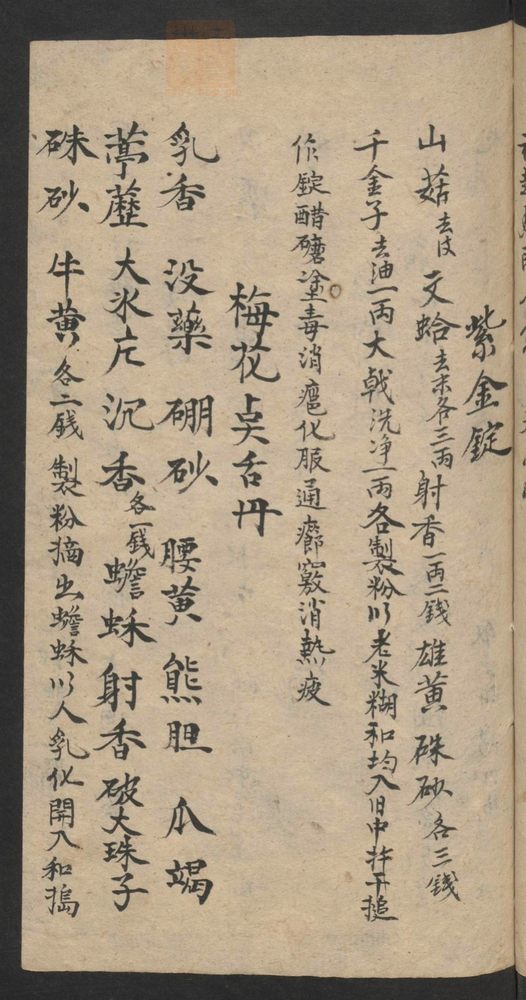 紫金錠
山茹去皮 文蛤去末各三両 射香一両二錢 雄黃 硃砂各三錢
千金子去油一両 大戟洗净一両 各製粉以老米糊和均入旧中杵千搥
作錠醋磨塗毒消瘟化服通癤竅消熱疫
梅花点舌丹
乳香 没藥 硼砂 腰黃 熊胆 瓜竭
葶藶 大氷片 沉香各一錢 蟾蘇 射香 破大珠子
硃砂 牛黃各二錢 製粉摘出蟾蘇以人乳化開入和搗